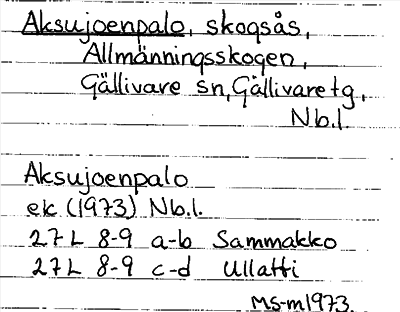 Aksujoenpalo, skogsås,
Allmänningsskogen,
Gällivare sn, Gällivare tg,
Nb.l.
Aksujoenpalo
ek (1973) Nb.l.
27L 8-9 a-b Sammakko
27L 8-9 c-d Ullatti
MS-m1973.